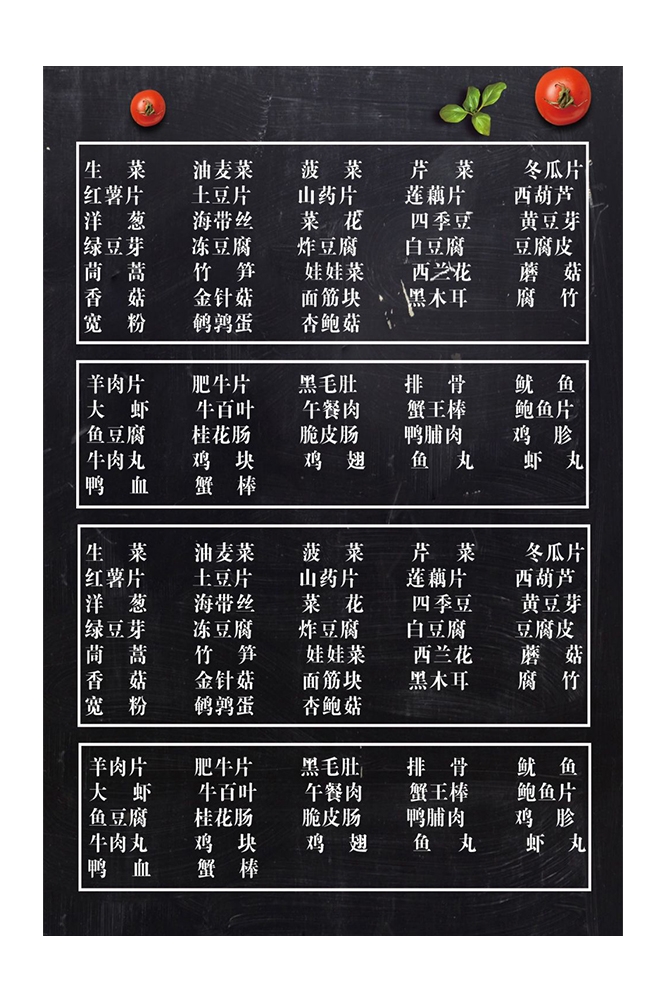 生 菜 油麦菜 菠 菜 芹 菜 冬瓜片
红薯片 土豆片 山药片 莲藕片 西葫芦
洋 葱 海带丝 菜 花 四季豆 黄豆芽
绿豆芽 冻豆腐 炸豆腐 白豆腐 豆腐皮
茼 蒿 竹 笋 娃娃菜 西兰花 蘑 菇
香 菇 金针菇 面筋块 黑木耳 腐 竹
宽 粉 鹌鹑蛋 杏鲍菇
羊肉片 肥牛片 黑毛肚 排 骨 鱿 鱼
大 虾 牛百叶 午餐肉 蟹王棒 鲍鱼片
鱼豆腐 桂花肠 脆皮肠 鸭脯肉 鸡 胗
牛肉丸 鸡 块 鸡 翅 鱼 丸 虾 丸
鸭 血 蟹 棒
生 菜 油麦菜 菠 菜 芹 菜 冬瓜片
红薯片 土豆片 山药片 莲藕片 西葫芦
洋 葱 海带丝 菜 花 四季豆 黄豆芽
绿豆芽 冻豆腐 炸豆腐 白豆腐 豆腐皮
茼 蒿 竹 笋 娃娃菜 西兰花 蘑 菇
香 菇 金针菇 面筋块 黑木耳 腐 竹
宽 粉 鹌鹑蛋 杏鲍菇
羊肉片 肥牛片 黑毛肚 排 骨 鱿 鱼
大 虾 牛百叶 午餐肉 蟹王棒 鲍鱼片
鱼豆腐 桂花肠 脆皮肠 鸭脯肉 鸡 胗
牛肉丸 鸡 块 鸡 翅 鱼 丸 虾 丸
鸭 血 蟹 棒